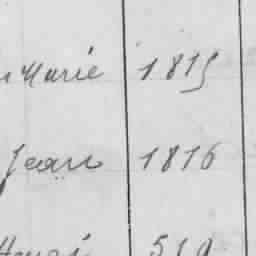 Marie 1815
Jean 1816
Henri 519